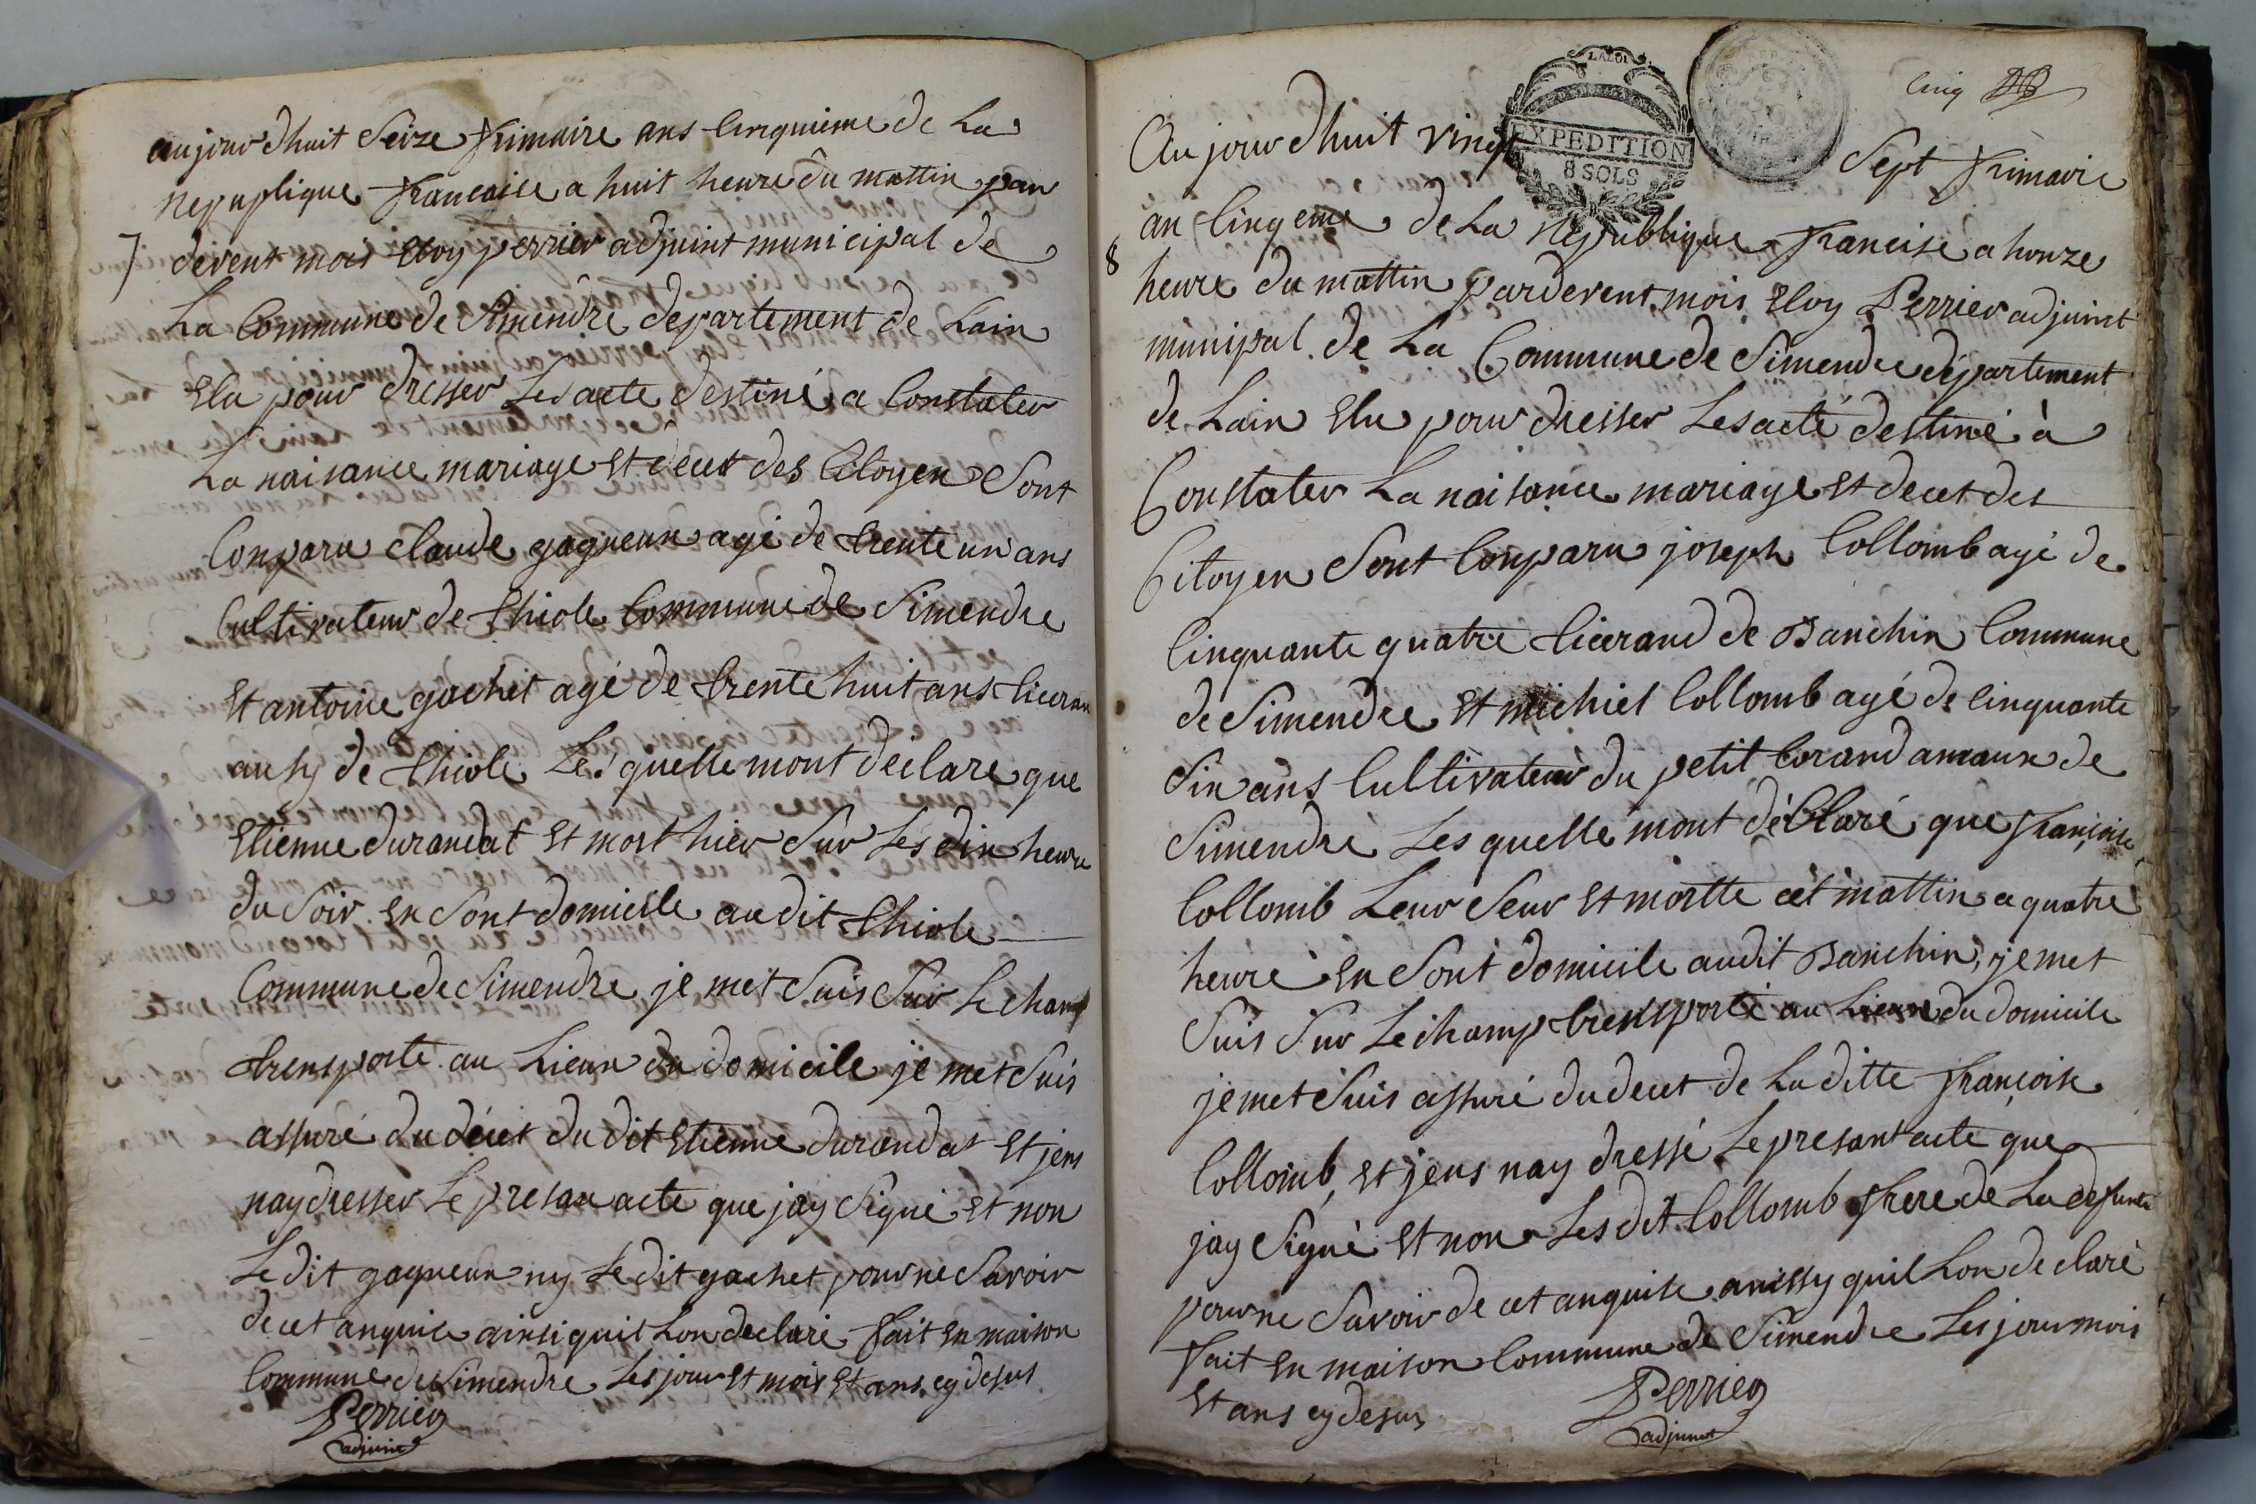 aujourdhuit Seize frimaire ans Cinquieme de La
Repuplique francaise a huit heure du mattin par
7
devent mois Eloy perrier adjuint municipal de
La Commune de Simendre departement de Lain
Elu pour dresser Les acte destiné a Constater
La naisance mariage et decet des Citoyen Sont
Conparu claude gagneux agé de trente un ans
Cultivateur de thiole Commune de Simendre
Et antoine gachet agé de trente huit ans ticeran
aussy de thiole Lesquelle mont déclare que
Etienne durandat Et mort hier Sur Les dix heure
du Soir En Sont domicile au dit thiole
Commune de Simendre je met Suis Sur Le champ
trensporte au Lieux du domicile je met Suis
assuré du décet du dit Etienne durandat Et jens
nay dresser Le presan acte que jay Signé Et non
Le dit gagneux ny Le dit gachet pour ne Savoir
de cet anquis ainsi quil Lon declaré fait En maison
Commune de Simendre Les jour Et mois Et ans cy desus
Perrier
adjuint
Cinq
LA LOI
EXPEDITION
8 SOLS
Au jourdhuit vingt Sept frimaire
an Cinqeme de La Republique francise a honze
8
heure du mattin pardevent mois Eloy Perrier adjuint
munipal de La Commune de Simendre département
de Lain Elu pour dresser Les acte destiné à
Constater La naisance mariage Et decet des
Citoyen Sont Conparu joseph Collomb agé de
Cinquante quatre ticerand de Banchin Commune
de Simendre Et michiel Collomb agé de Cinquante
Six ans Cultivateur du petit Corand amaux de
Simendre Les quelle mont déClaré que françoise
Collomb Leur Seur Et mortte cét mattin a quatre
heure En Sont domicile audit Banchin, je met
Suis Sur Le champ trensporté au Lieux du domicile
je met Suis assuré du decet de La ditte françoise
Collomb, Et jens nay dressé Le presant acte que
jay Signé Et non Les dit Collomb frere de La defunte
pour ne Savoir de cet anquise anissy quil Lon declaré
fait En maison Commune de Simendre Les jour mois
Et ans cy desus
Perrier
adjunt